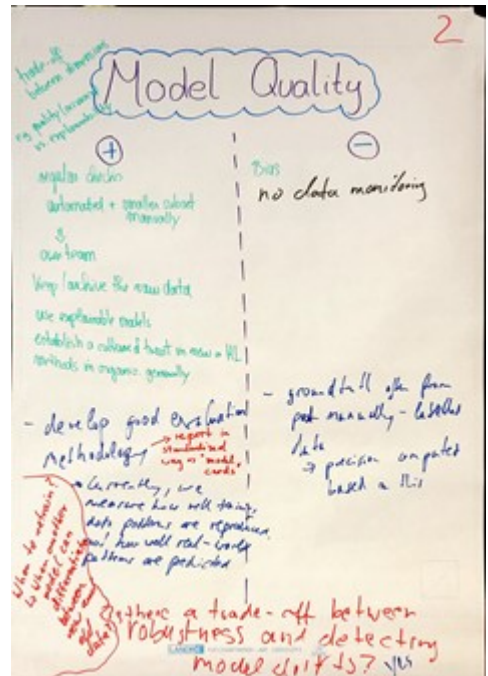 2
trade-off
between dimensions
eg quality/accuracy
vs explainability
Model Quality
+
regular checks
automated + smaller subset
manually
own team
Keep/archive the raw data
use explainable models
establish a culture of trust in new ML
methods in organiz. generally
- develop good evaluation
methodology
→ report in
standardised
way → "model
cards"
• Currently, we
measure how well training
data patterns are reproduced,
not how well real-world
patterns are predicted
When to retrain?
is when another
model can
differentiate
between
new and
old
dates?
-
Bias
no data monitoring
- ground truth often from
past manually-labelled
data
→ precision computed
based on this
Is there a trade-off between
robustness and detecting
model drifts? yes